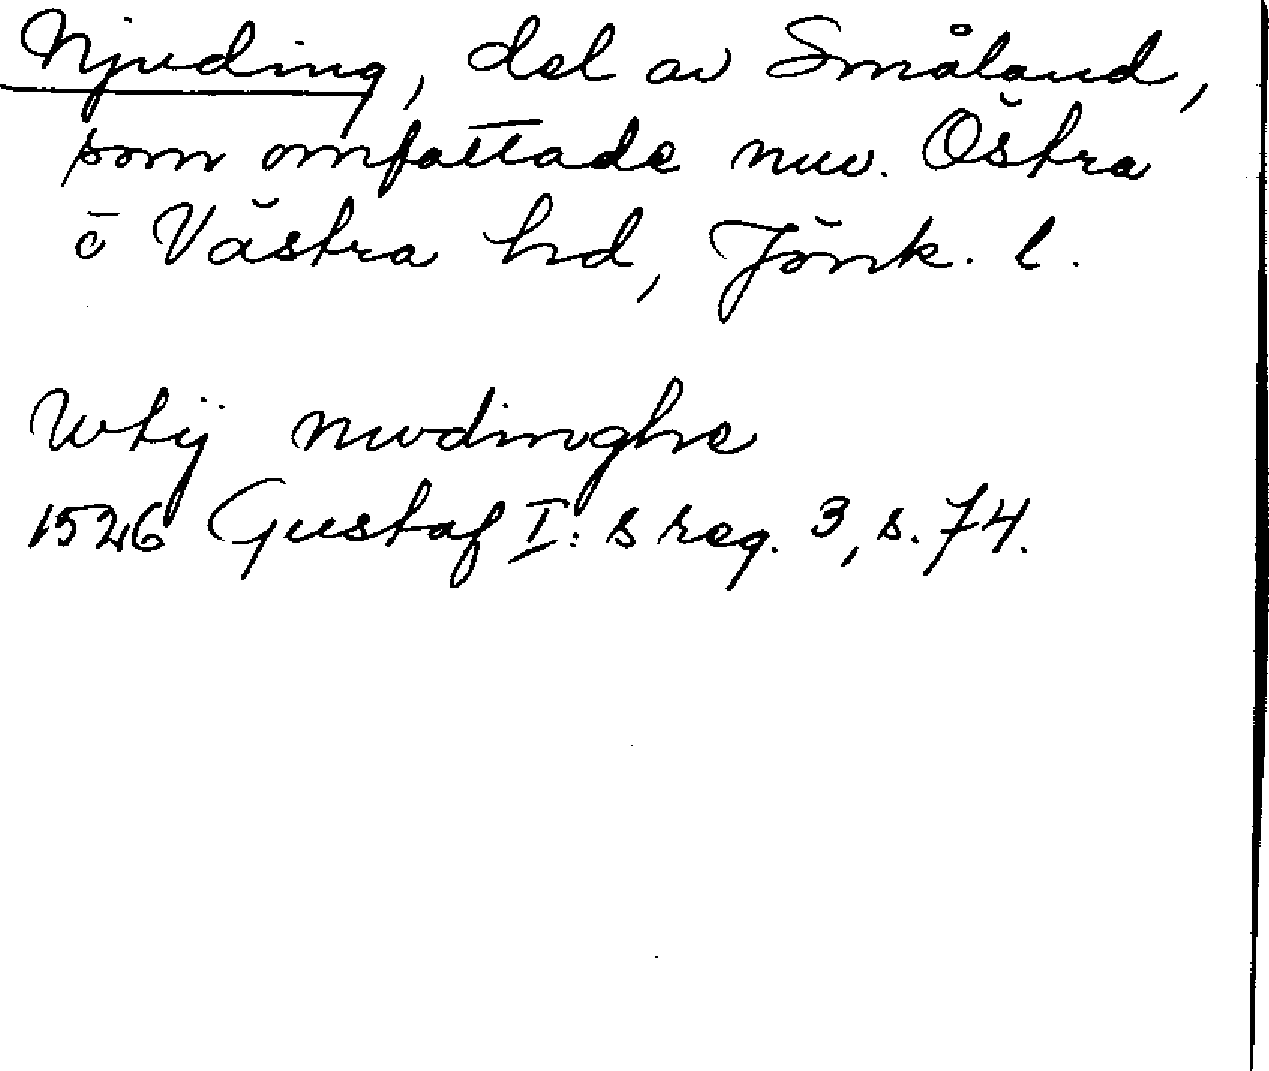 Njuding, del av Småland,
som omfattade nuv. Östra
o Västra hd, Jönk. l.
Wtij nwdinghe
1526 Gustaf I:s reg. 3, s. 74.